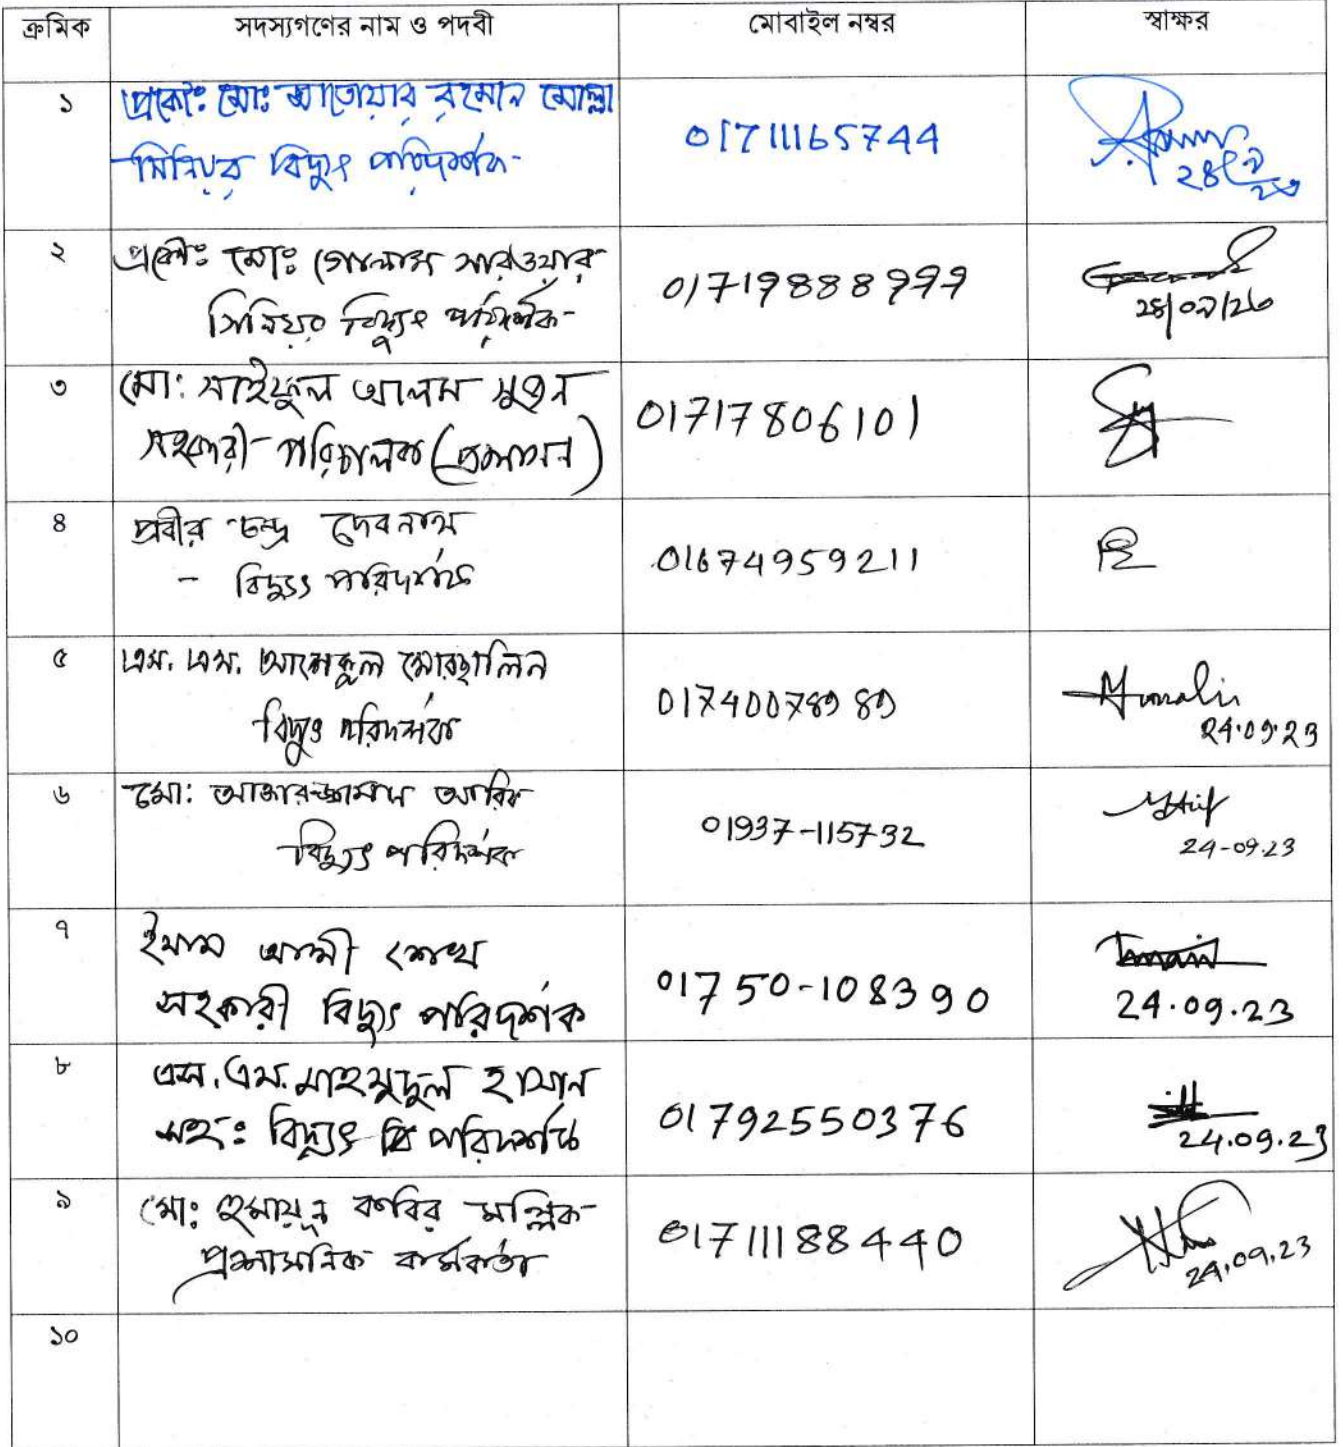 ক্রমিক সদস্যগণের নাম ও পদবী মোবাইল নম্বর স্বাক্ষর
১ প্রকৌঃ মোঃ আতোয়ার রহমান মোল্লা
সিনিয়র বিদ্যুৎ পরিদর্শক
01711165744
২ প্রকৌঃ মোঃ গোলাম সারওয়ার
সিনিয়র বিদ্যুৎ পরিদর্শক
01719888999
২৪/০৯/২৩
৩ মোঃ সাইফুল আলম
সহকারী পরিচালক (প্রশাসন)
01717806101
৪ প্রবীর চন্দ্র দেবনাথ
- বিদ্যুৎ পরিদর্শক
01674959211
৫ এস. এম. মোরছালিন
বিদ্যুৎ পরিদর্শক
01740078989
24.09.23
৬ মোঃ আরিফ
বিদ্যুৎ পরিদর্শক
01937-115732
24-09.23
৭ ইমাম আলী শেখ
সহকারী বিদ্যুৎ পরিদর্শক
01750-108390
24.09.23
৮ এস.এম. মাহমুদুল হাসান
সহঃ বিদ্যুৎ পরিদর্শক
01792550376
24.09.23
৯ মোঃ হুমায়ুন কবির মল্লিক
প্রশাসনিক কর্মকর্তা
01711188440
24.09.23
১০